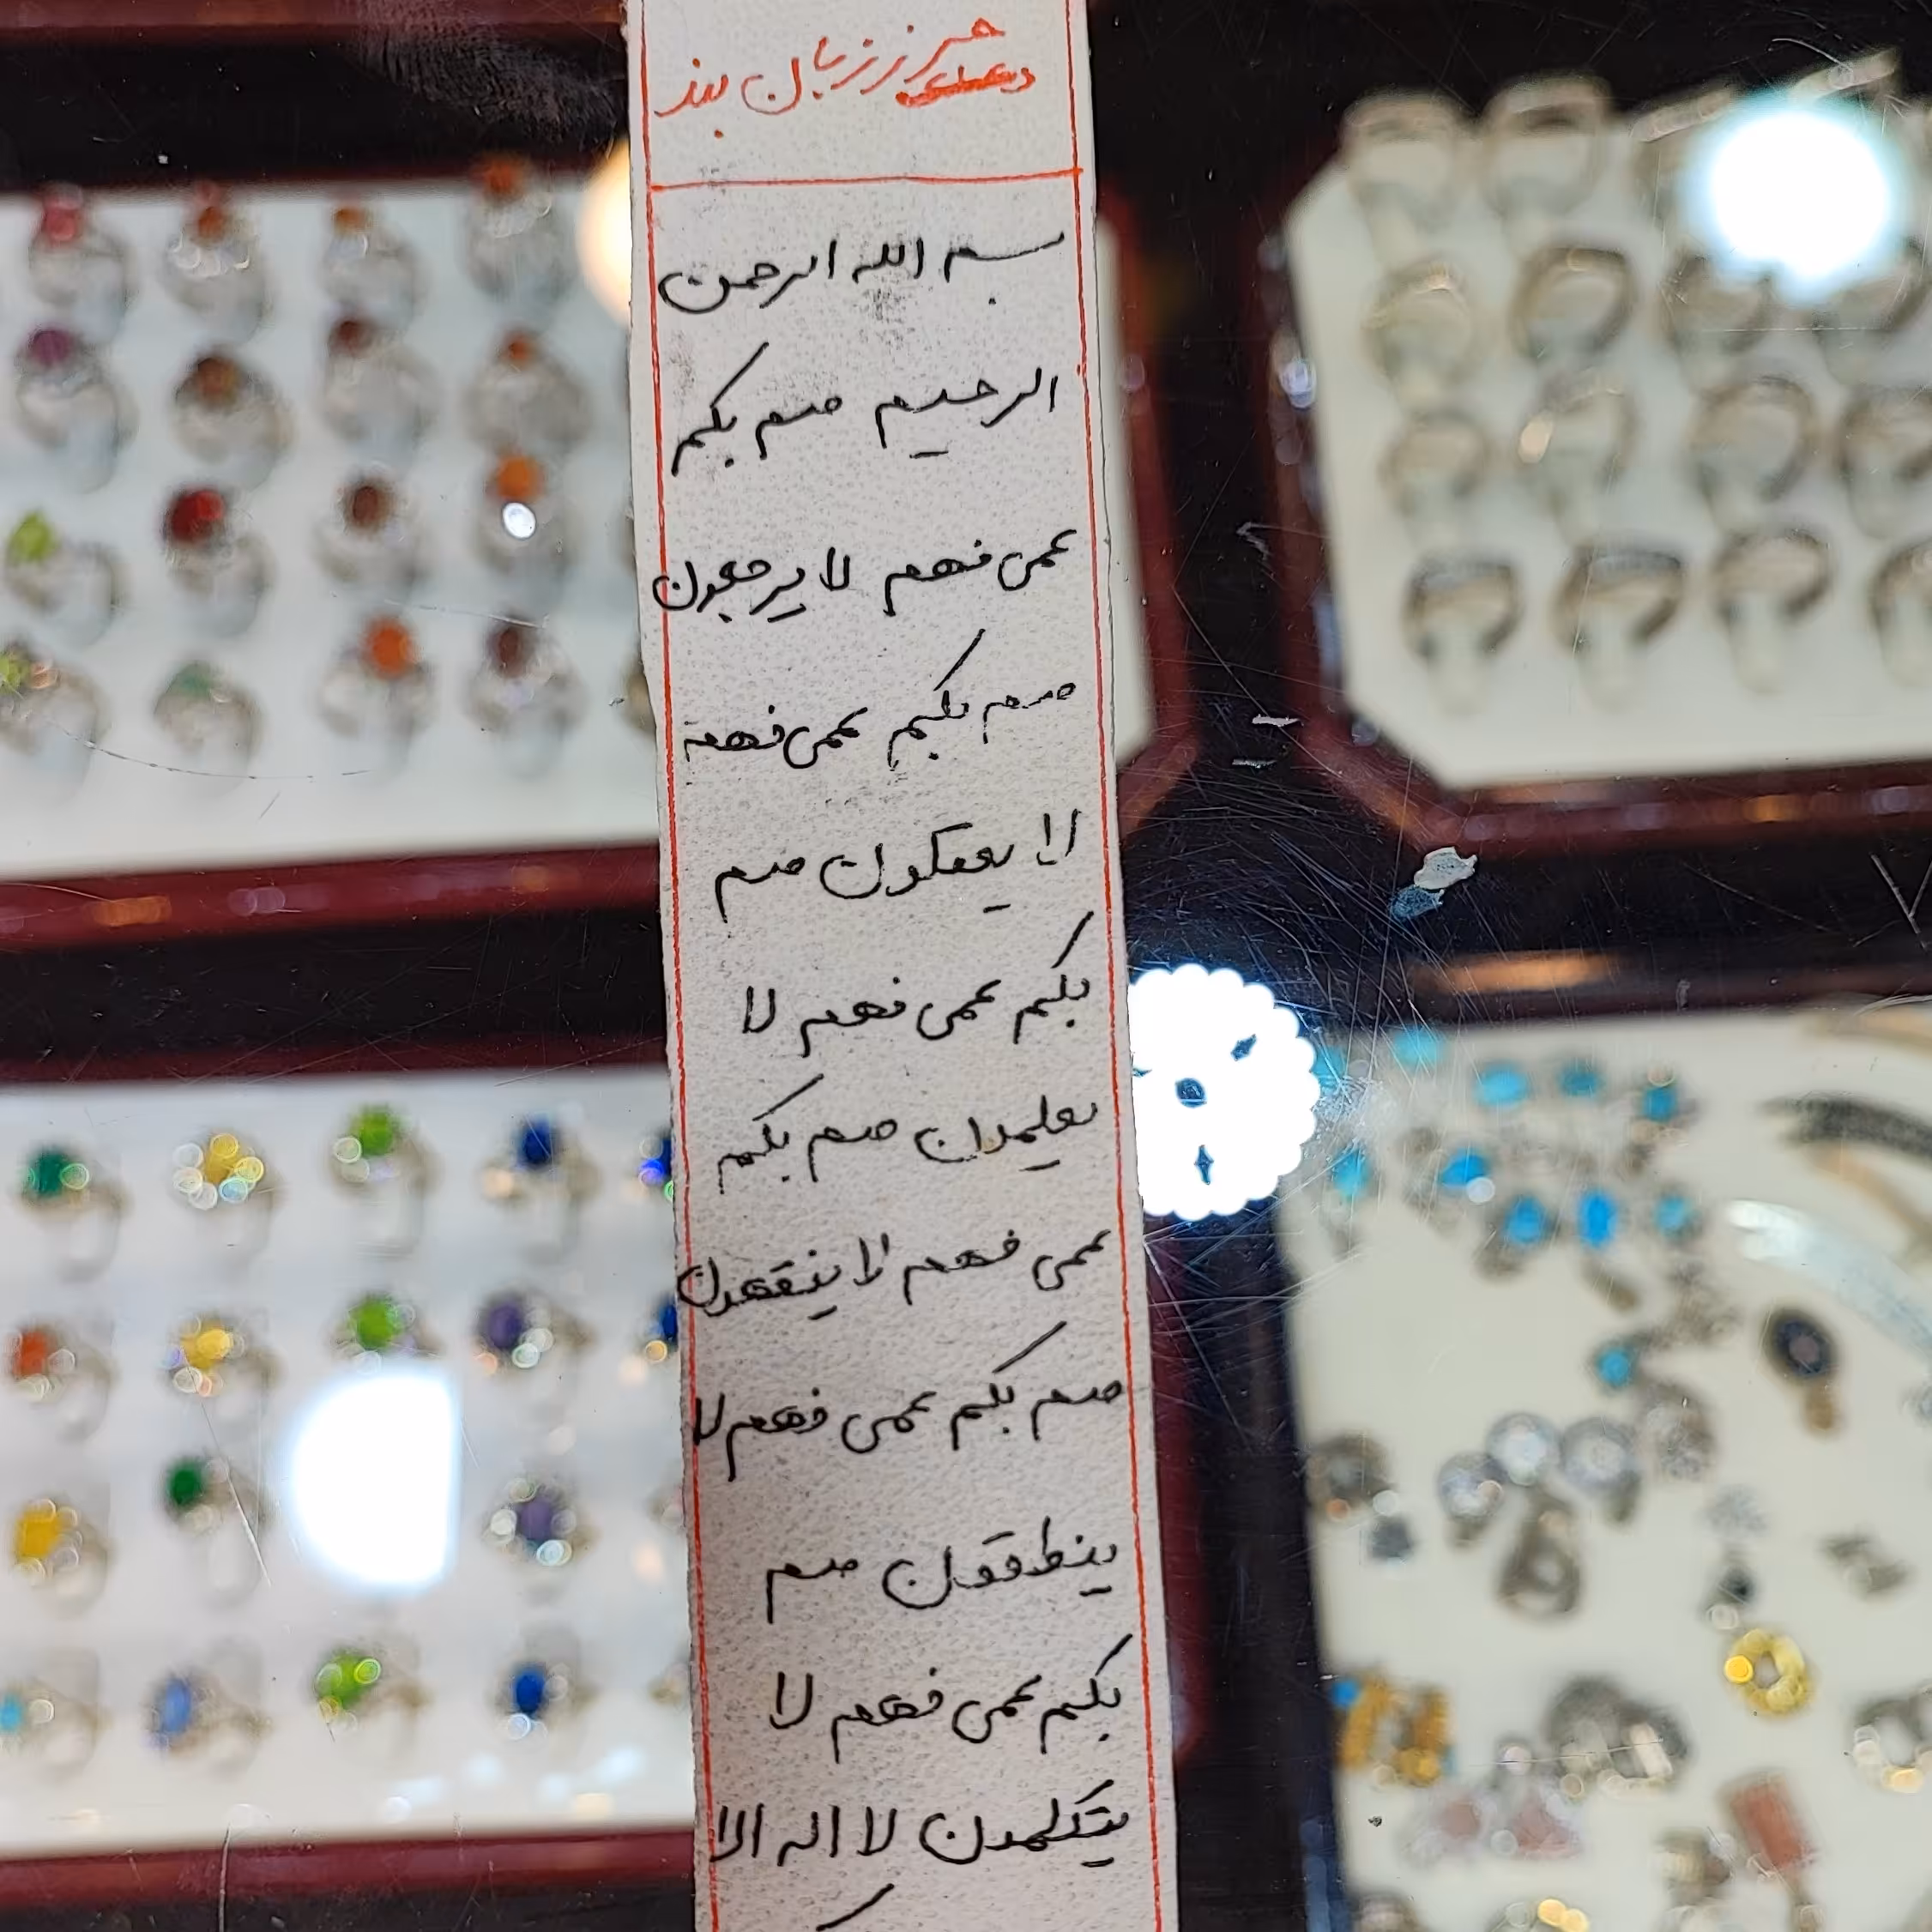 حرز زبان بند
بسم الله الرحمن
الرحیم صم بکم
عمی فهم لا یرجعون
صم بکم عمی فهم
لا یعقلون صم
بکم عمی فهم لا
یعلمون صم بکم
عمی فهم لا یفقهون
صم بکم عمی فهم لا
ینطقون صم
بکم عمی فهم لا
یتکلمون لا اله الا